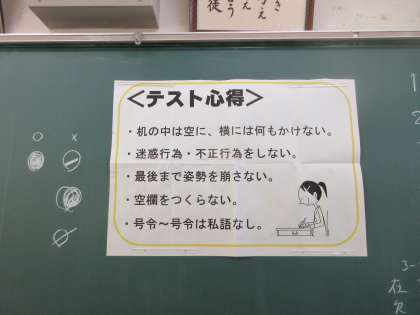 <テスト心得>
・机の中は空に、横には何もかけない。
・迷惑行為・不正行為をしない。
・最後まで姿勢を崩さない。
・空欄をつくらない。
・号令~号令は私語なし。
○ ×
1
2
3-
在
欠